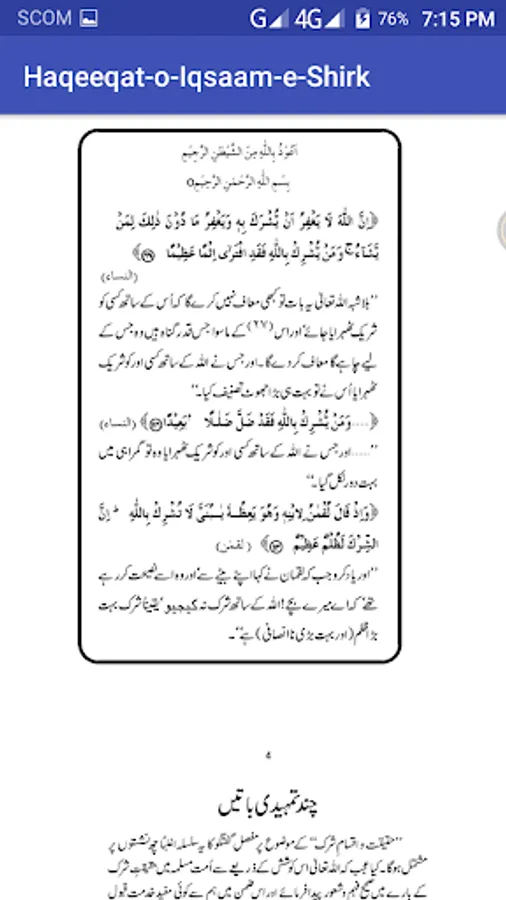 SCOM G 4G 76% 7:15 PM
Haqeeqat-o-Iqsaam-e-Shirk
اَعُوْذُ بِاللّٰهِ مِنَ الشَّيْطٰنِ الرَّجِيْمِ
بِسْمِ اللّٰهِ الرَّحْمٰنِ الرَّحِيْمِ
﴿اِنَّ اللّٰهَ لَا يَغْفِرُ اَنْ يُّشْرَكَ بِهٖ وَيَغْفِرُ مَا دُوْنَ ذٰلِكَ لِمَنْ
يَّشَآءُ ۚ وَمَنْ يُّشْرِكْ بِاللّٰهِ فَقَدِ افْتَرٰٓى اِثْمًا عَظِيْمًا ﴾
(النساء)
”بلاشبہ اللہ تعالیٰ یہ بات تو کبھی معاف نہیں کرے گا کہ اُس کے ساتھ کسی کو
شریک ٹھہرایا جائے‘ اور اس (۲۷) کے ماسوا جس قدر گناہ ہیں وہ جس کے
لیے چاہے گا معاف کر دے گا۔ اور جس نے اللہ کے ساتھ کسی اور کو شریک
ٹھہرایا اُس نے تو بہت ہی بڑا جھوٹ تصنیف کیا۔“
﴿....وَمَنْ يُّشْرِكْ بِاللّٰهِ فَقَدْ ضَلَّ ضَلٰلًا ۢ بَعِيْدًا﴾ (النساء)
”.....اور جس نے اللہ کے ساتھ کسی اور کو شریک ٹھہرایا وہ تو گمراہی میں
بہت دور نکل گیا۔“
﴿وَاِذْ قَالَ لُقْمٰنُ لِابْنِهٖ وَهُوَ يَعِظُهٗ يٰبُنَيَّ لَا تُشْرِكْ بِاللّٰهِ ۭ اِنَّ
الشِّرْكَ لَظُلْمٌ عَظِيْمٌ ﴾ (لقمٰن)
”اور یاد کرو جب کہ لقمان نے کہا اپنے بیٹے سے‘ اور وہ اسے نصیحت کر رہے
تھے‘ کہ اے میرے بچے! اللہ کے ساتھ شرک نہ کیجیو‘ یقیناً شرک بہت
بڑا ظلم (اور بہت بڑی ناانصافی) ہے“۔
4
چند تمہیدی باتیں
”حقیقت و اقسامِ شرک“ کے موضوع پر مفصل گفتگو کا یہ سلسلہ اغلباً چھ نشستوں پر
مشتمل ہوگا۔ کیا عجب کہ اللہ تعالیٰ اس کوشش کے ذریعے سے اُمت مسلمہ میں حقیقتِ شرک
کے بارے میں صحیح فہم و شعور پیدا فرمائے اور اس ضمن میں ہم سے کوئی مفید خدمت قبول